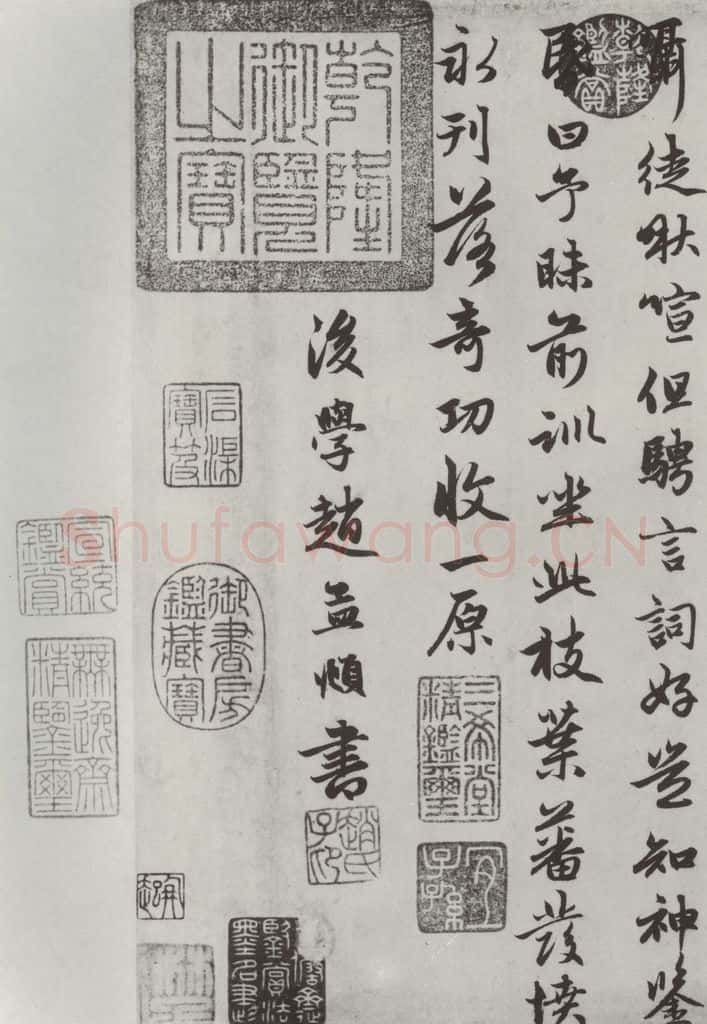 囁徒啾喧但騁言詞好豈知神鑒
昬曰予昧前訓坐此枝葉蕃發憤
永刊落奇功收一原
後學趙孟頫書
乾隆鑑賞
乾隆御覽之寶
三希堂精鑑璽
宜子孫
石渠寶笈
御書房鑑藏寶
宣統鑑賞
無逸齋精鑒璽
Shufawang.CN